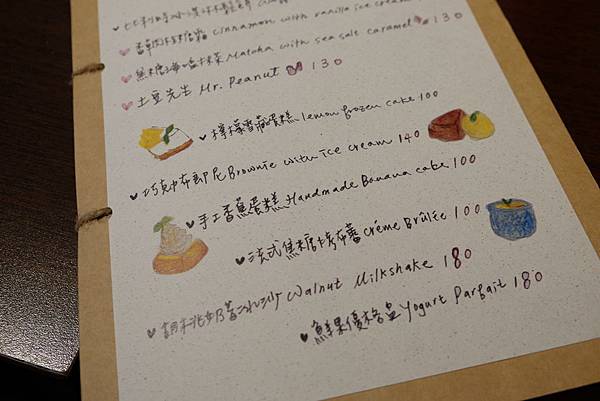 香草肉桂糖霜 Cinnamon with vanilla ice cream
焦糖海鹽抹茶 Matcha with sea salt caramel 130
土豆先生 Mr. Peanut 130
檸檬雪藏蛋糕 lemon frozen cake 100
巧克力布朗尼 Brownie with ice cream 140
手工香蕉蛋糕 Handmade Banana cake 100
法式焦糖烤布蕾 Créme Brûlée 100
胡桃奶蓄冰沙 Walnut Milkshake 180
鮮果優格堡 Yogurt Parfait 180